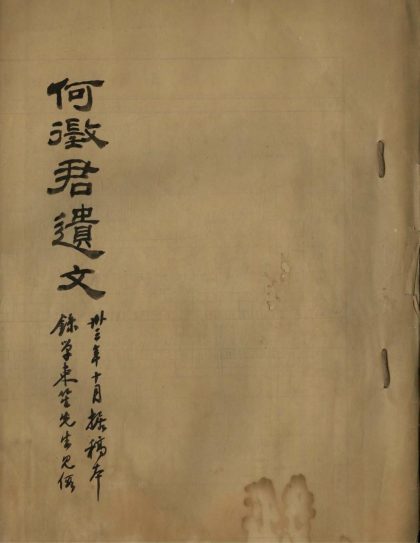 何徵君遺文
卅三年十月據稿本
錄東笙先生見假